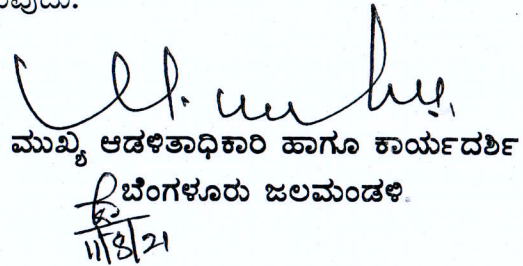 ಮುಖ್ಯ ಆಡಳಿತಾಧಿಕಾರಿ ಹಾಗೂ ಕಾರ್ಯದರ್ಶಿ
ಬೆಂಗಳೂರು ಜಲಮಂಡಳಿ
11/8/21